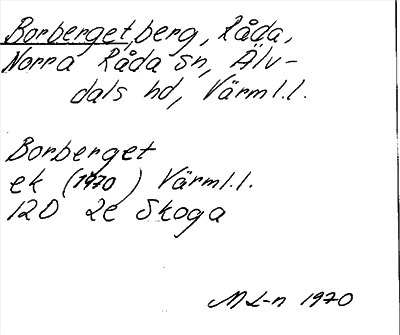 Borberget, berg, Råda,
Norra Råda sn, Älv-
dals hd, Värml.l.
Borberget
ek (1970) Värml.l.
12D 2e Skoga
M L-n 1970